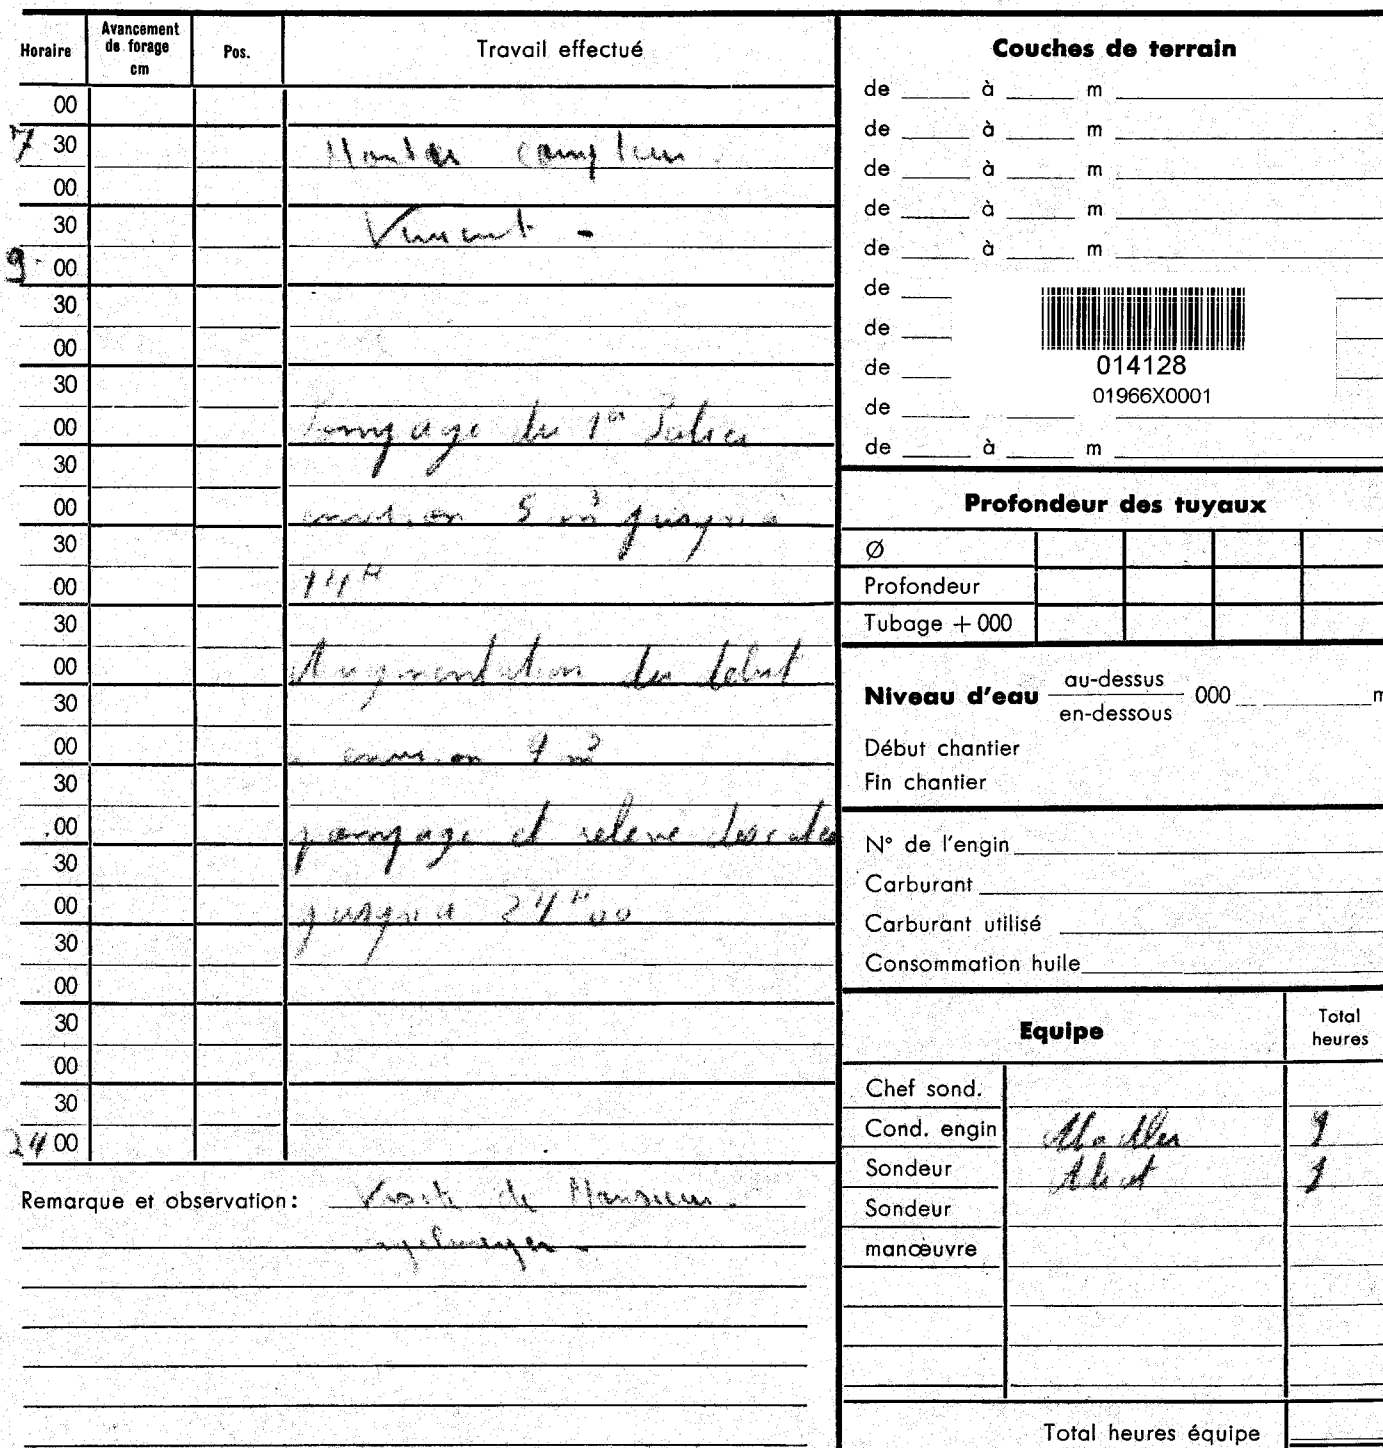 Horaire
Avancement
de forage
cm
Pos.
Travail effectué
00
7 30
00
30
9 00
30
00
30
00
30
00
30
00
30
00
30
00
30
00
30
00
30
00
30
00
30
24 00
Vincent -
Pompage du 1er Palier
environ 5 m³ jusqu'à
14 H
Augmentation du débit
environ 9 m³
pompage et relevé
jusqu'à 24 H 00
Remarque et observation: Visite de Monsieur
Couches de terrain
de à m
de à m
de à m
de à m
de à m
de
de
de
de
de à m
014128
01966X0001
Profondeur des tuyaux
Ø
Profondeur
Tubage + 000
Niveau d'eau au-dessus 000 m
en-dessous
Début chantier
Fin chantier
N° de l'engin
Carburant
Carburant utilisé
Consommation huile
Equipe
Total
heures
Chef sond.
Cond. engin 9
Sondeur 9
Sondeur
manœuvre
Total heures équipe